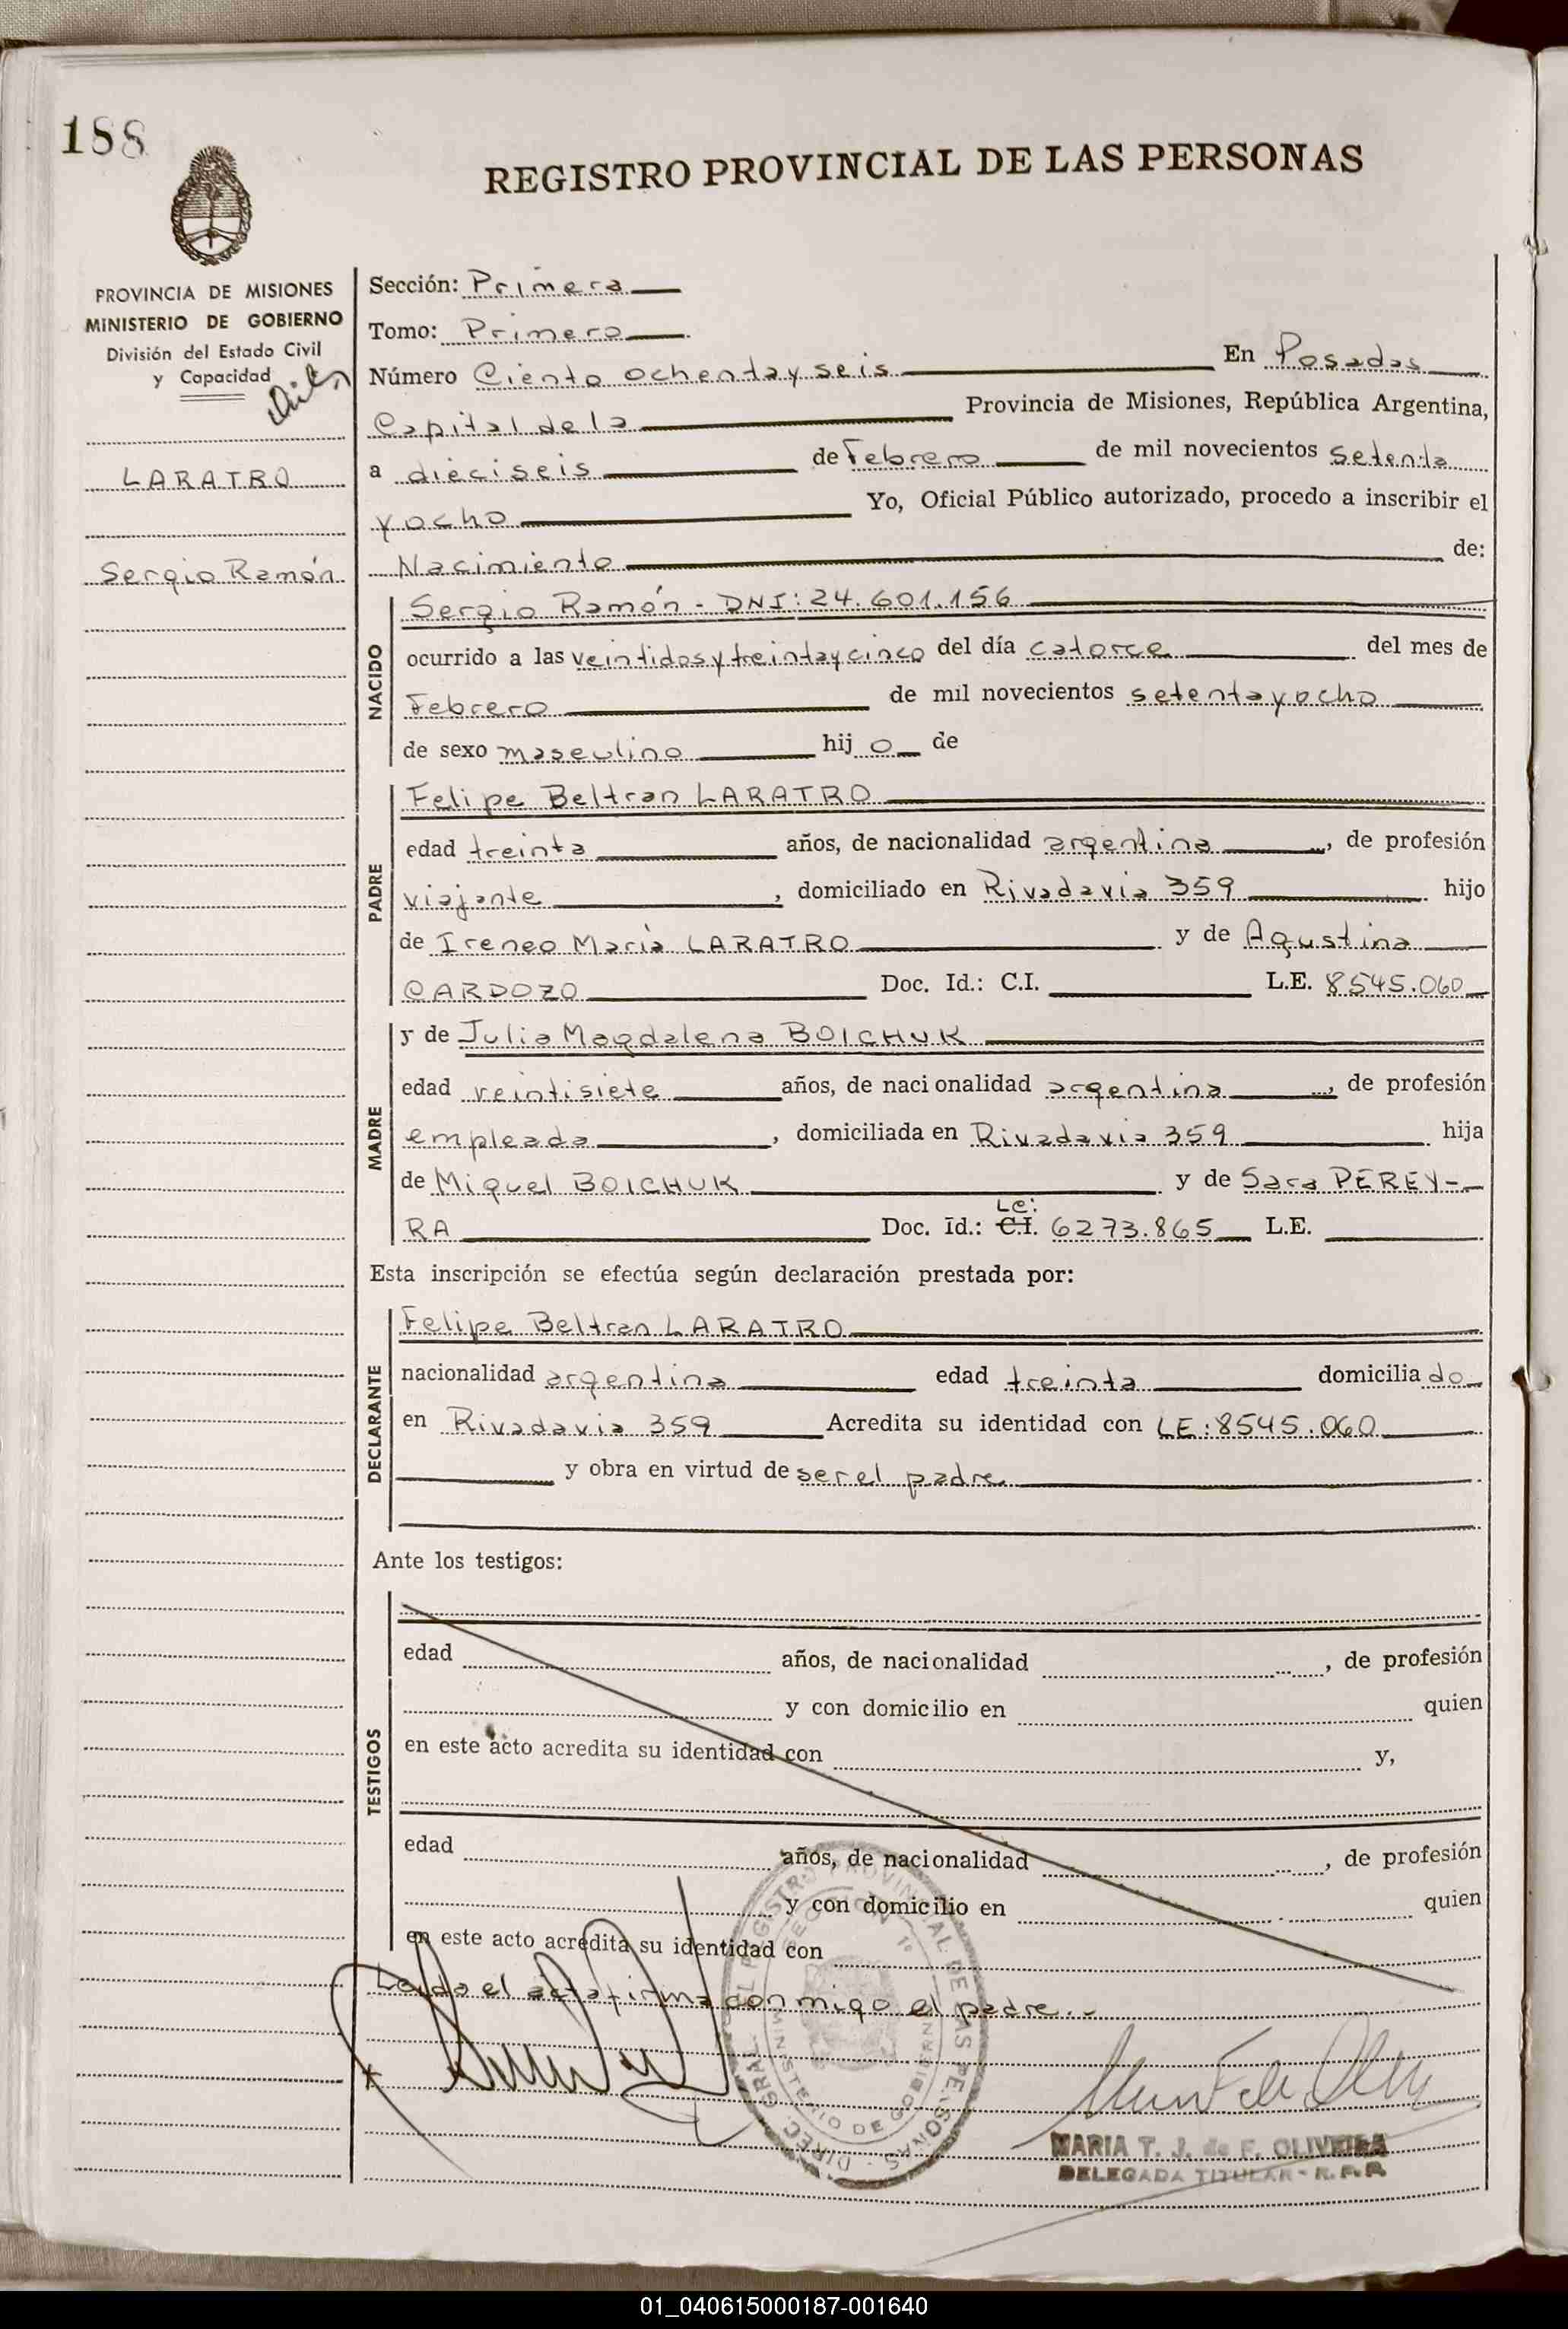 188
REGISTRO PROVINCIAL DE LAS PERSONAS
PROVINCIA DE MISIONES
MINISTERIO DE GOBIERNO
División del Estado Civil
y Capacidad
LARATRO
Sergio Ramón
Sección: Primera
Tomo: Primero
Número Ciento ochenta y seis En Posadas
Capital de la Provincia de Misiones, República Argentina,
a dieciseis de Febrero de mil novecientos setenta
y ocho Yo, Oficial Público autorizado, procedo a inscribir el
Nacimiento de:
NACIDO
Sergio Ramón - DNI: 24.601.156
ocurrido a las veintidos y treinta y cinco del día catorce del mes de
Febrero de mil novecientos setenta y ocho
de sexo masculino hijo de
PADRE
Felipe Beltran LARATRO
edad treinta años, de nacionalidad argentina, de profesión
viajante, domiciliado en Rivadavia 359 hijo
de Ireneo María LARATRO y de Agustina
CARDOZO Doc. Id.: C.I. L.E. 8545.060
MADRE
y de Julia Magdalena BOICHUK
edad veintisiete años, de nacionalidad argentina, de profesión
empleada, domiciliada en Rivadavia 359 hija
de Miguel BOICHUK y de Sara PEREY-
RA Doc. Id.: C.I. Le: 6273.865 L.E.
Esta inscripción se efectúa según declaración prestada por:
DECLARANTE
Felipe Beltran LARATRO
nacionalidad argentina edad treinta domiciliado
en Rivadavia 359 Acredita su identidad con LE: 8545.060
y obra en virtud de ser el padre
Ante los testigos:
TESTIGOS
edad años, de nacionalidad , de profesión
y con domicilio en quien
en este acto acredita su identidad con y,
edad años, de nacionalidad , de profesión
y con domicilio en quien
en este acto acredita su identidad con
Leida el acta firma conmigo el padre.-
DIREC. GRAL. DEL REGISTRO PROVINCIAL DE LAS PERSONAS
SECCION 1º
MINISTERIO DE GOBIERNO
MARIA T. J. de F. OLIVEIRA
DELEGADA TITULAR - R.P.P.
01_040615000187-001640